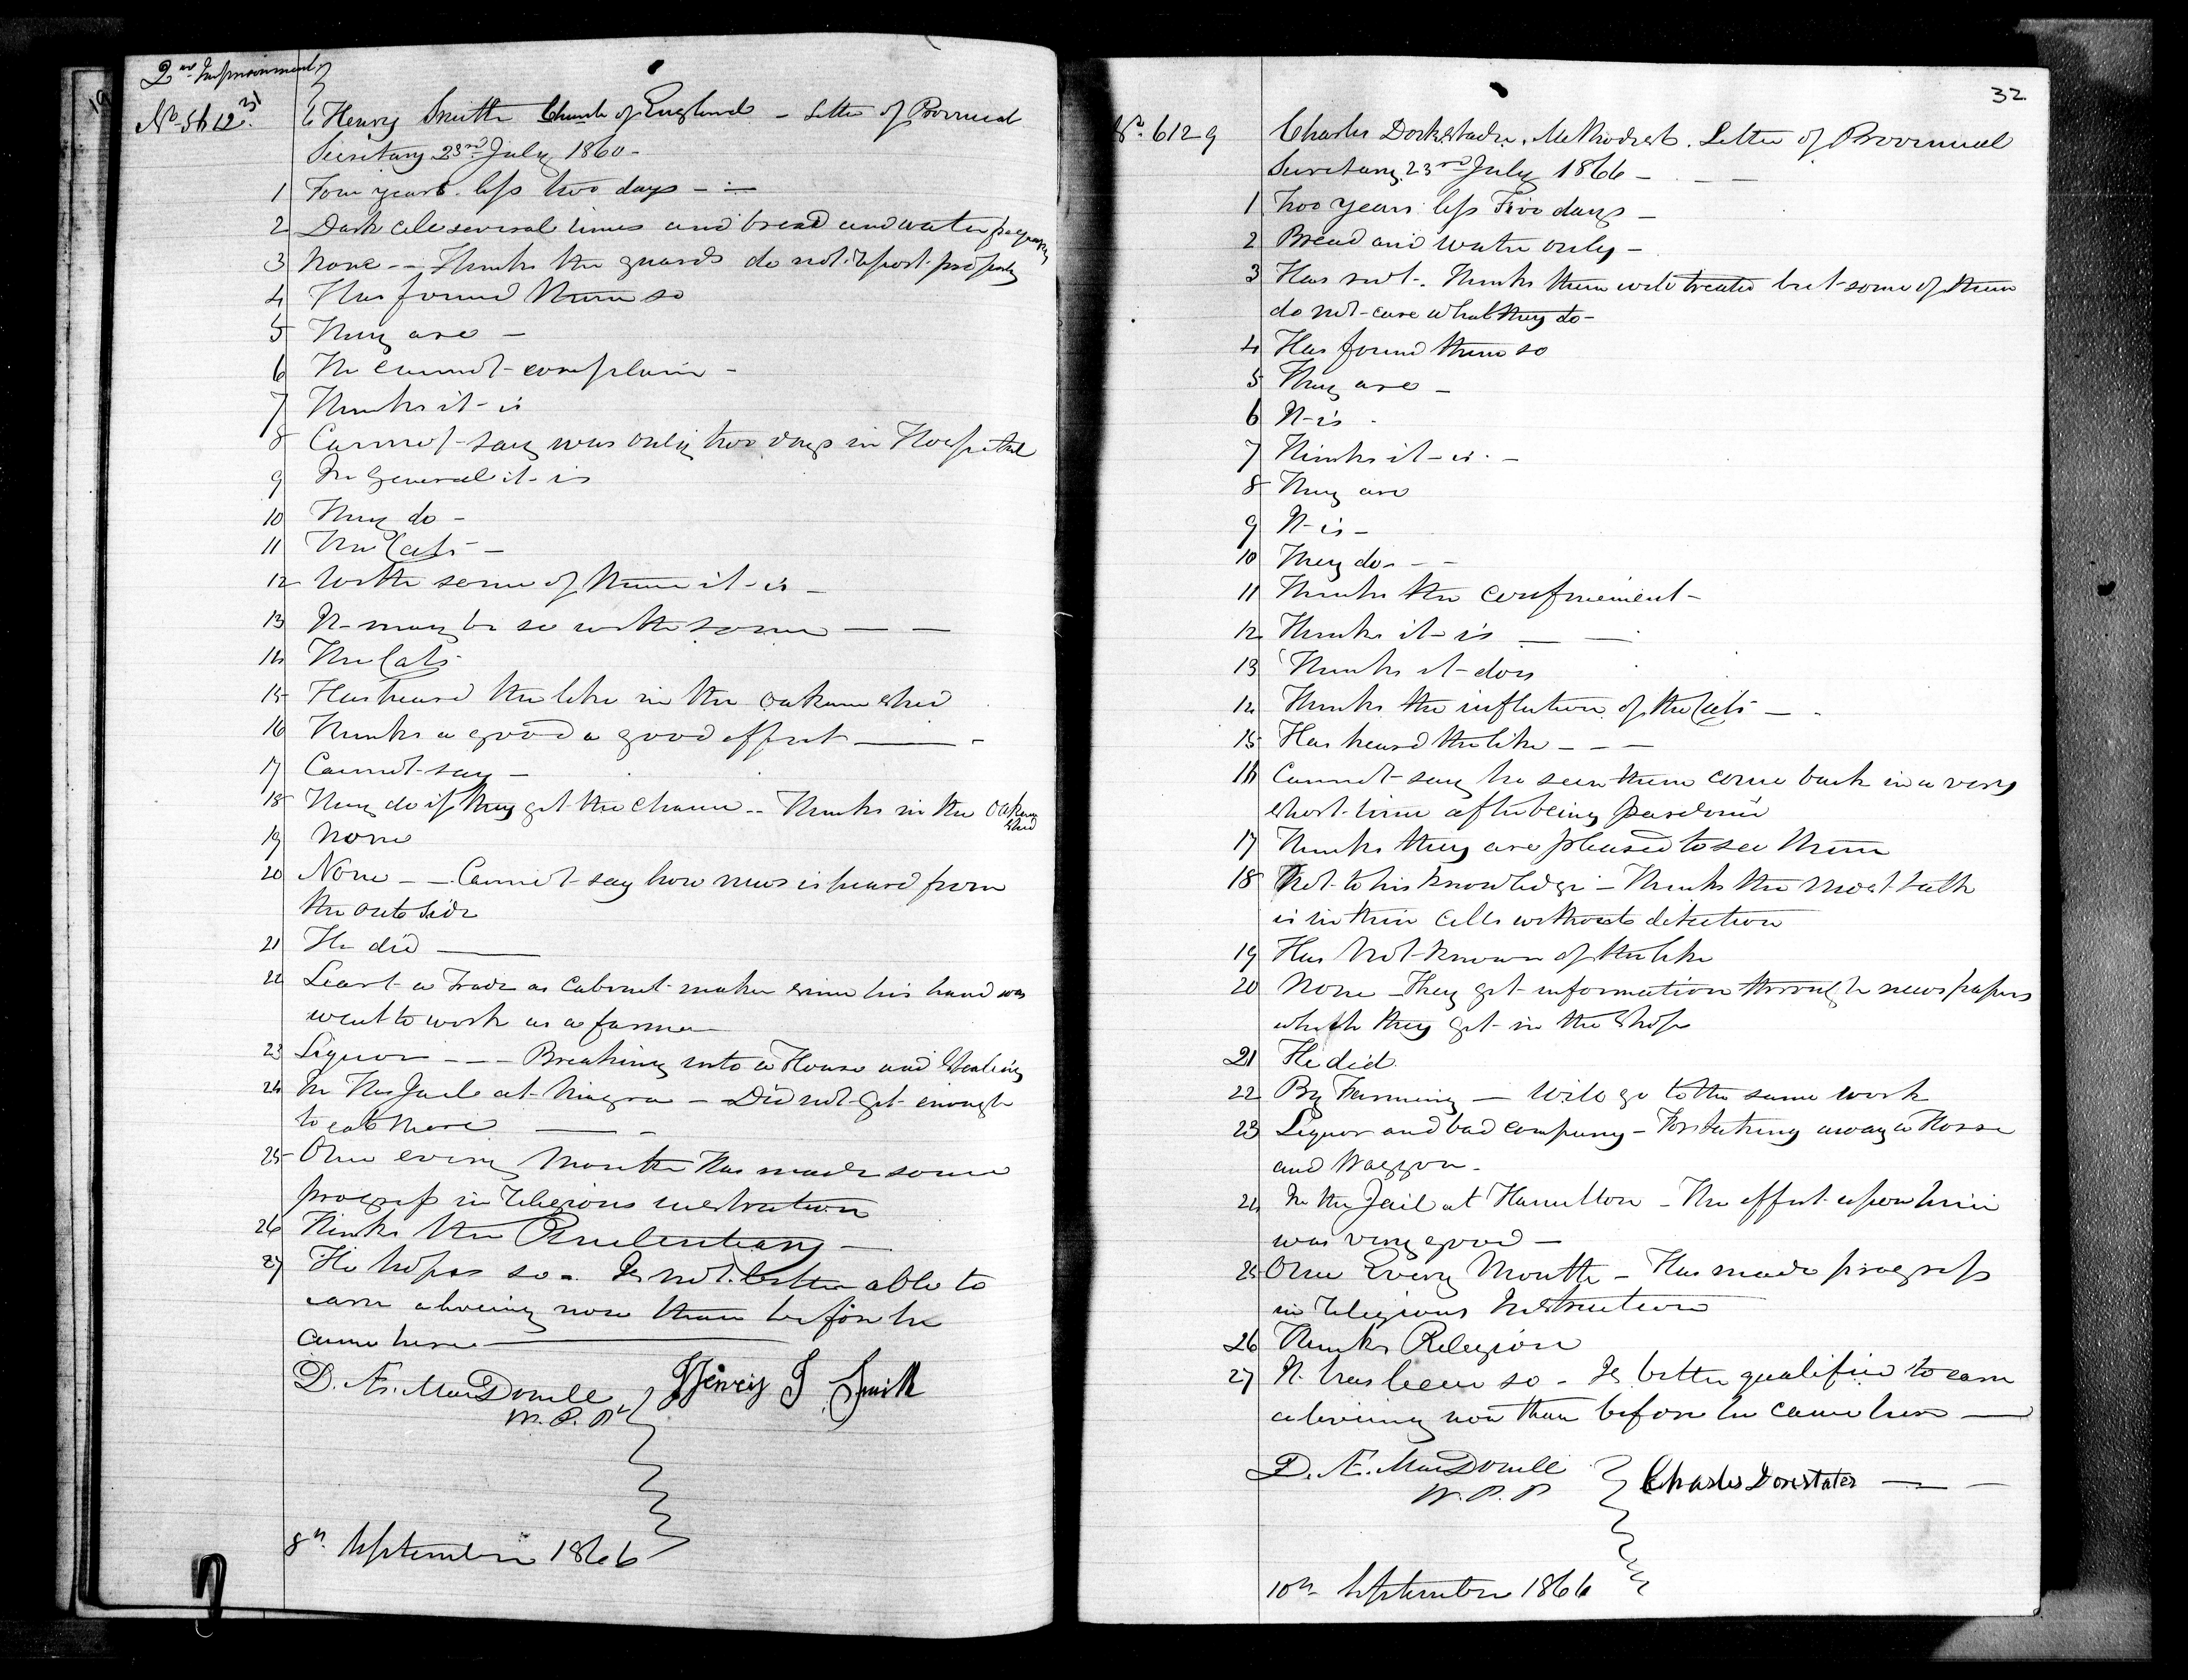 2nd Imprisonment
31
No. 5612. Henry Smith Church of England - Letter of Provincial
Secretary 23rd July 1860-
1 Four years less two days - -
2 Dark cell several times and bread and water frequently
3 None -- Thinks the guards do not report properly
4 Has found them so
5 They are -
6 He cannot complain -
7 Thinks it is
8 Cannot say was only two days in Hospital
9 In General it is
10 They do -
11 The Cats -
12 With some of them it is -
13 It may be so with some - -
14 The Cats
15 Has heard the like in the oakum shed
16 Thinks a good a good effect -
17 Cannot say -
18 They do if they get the chance -- Thinks in the Oakum
shed
19 None
20 None -- Cannot say how news is heard from
the outside
21 He did -
22 Leart a Trade as Cabinet maker since his hand was
went to work as a farmer
23 Liquor --- Breaking into a House and Stealing
24 In the Jail at Niagra - Did not get enough
to eat there - -
25 Once every Month Has made some
progress in religious instruction
26 Thinks the Penitentiary -
27 He hopes so - Is not better able to
earn a living now than before he
came here -
D. Æ. MacDonell
W. P. P.
Henry J Smith
8th September 1866
32
No. 6129 Charles Dockstader. Methodist. Letter of Provincial
Secretary 23rd July 1866 - - -
1 Two years less Five days -
2 Bread and water only -
3 Has not. Thinks them well treated but some of them
do not care what they do -
4 Has found them so
5 They are -
6 It is -
7 Thinks it is. -
8 They are
9 It is -
10 They do - - -
11 Thinks the confinement -
12 Thinks it is - -
13 Thinks it does
14 Thinks the infliction of the Cats - -
15 Has heard the like - - -
16 Cannot say he seen them come back in a very
short time after being pardoned
17 Thinks they are pleased to see them
18 Not to his knowledge - Thinks the most talk
is in their cells without detection
19 Has not known of the like
20 None - They get information through newspapers
which they get in the shops
21 He did
22 By Farming - Will go to the same work
23 Liquor and bad company - For taking away a Horse
and Waggon -
24 In the Jail at Hamilton - The effect upon him
was very good -
25 Once Every Month - Has made progress
in religious Instruction
26 Thinks Religion
27 It has been so - Is better qualified to earn
a living now than before he came here -
D. Æ. MacDonell
W. P. P.
Charles Dorstater - -
10th September 1866